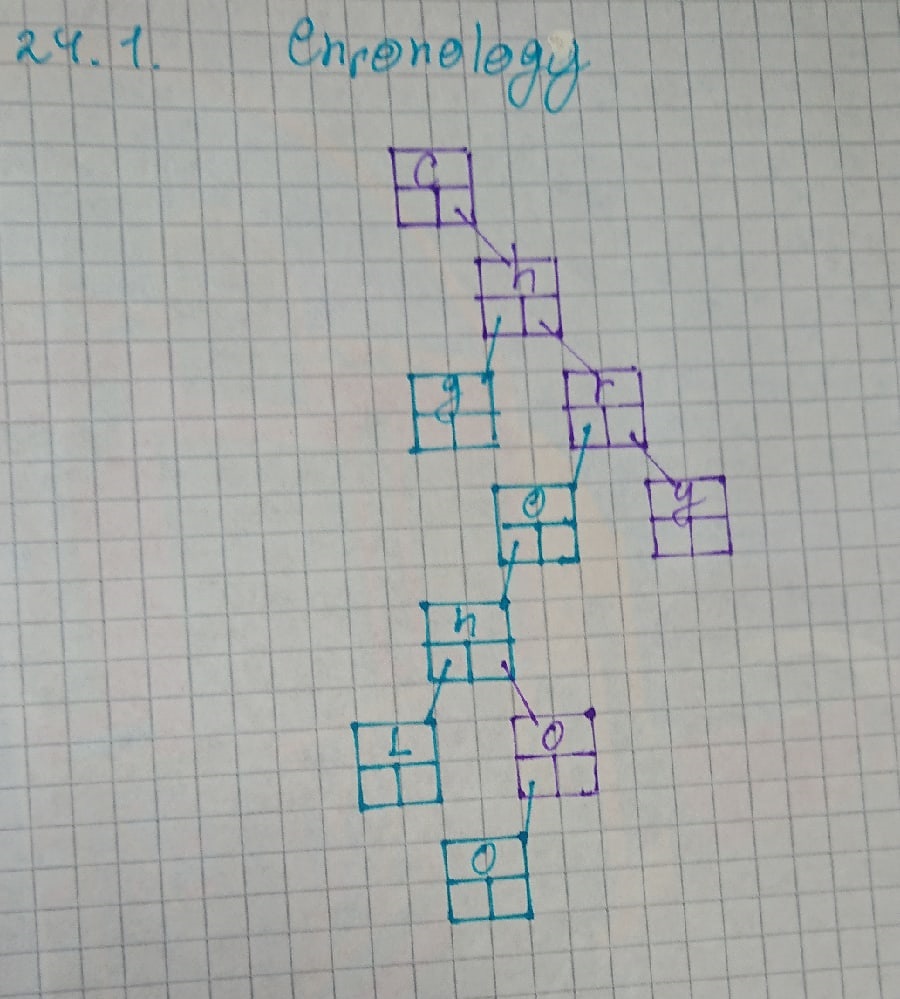 24.1. Chronology
C
h
g r
o y
n
l o
o